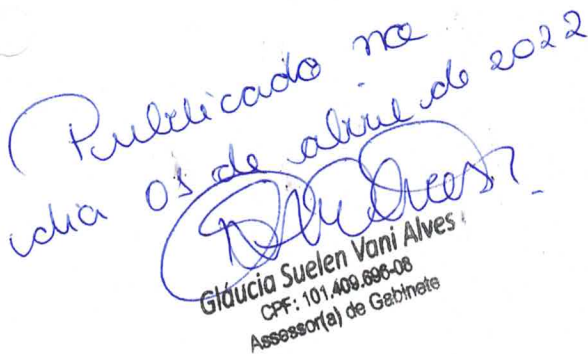 Publicado no
dia 01 de abril de 2022
Gláucia Suelen Vani Alves
CPF: 101.409.696-08
Assessor(a) de Gabinete